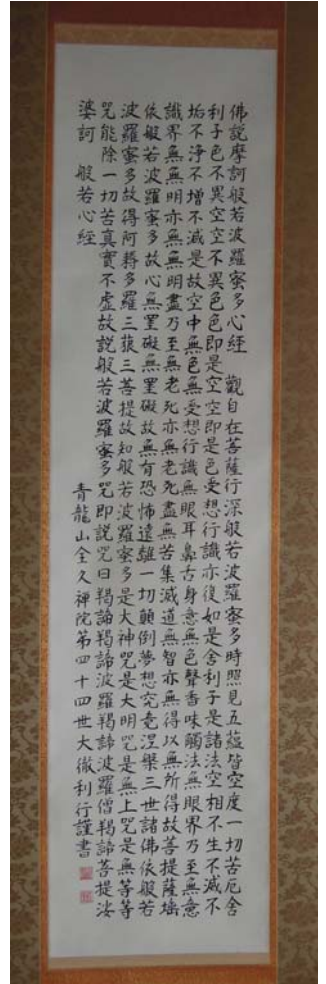 佛說摩訶般若波羅蜜多心經　觀自在菩薩行深般若波羅蜜多時照見五蘊皆空度一切苦厄舍
利子色不異空空不異色色即是空空即是色受想行識亦復如是舍利子是諸法空相不生不滅不
垢不淨不增不減是故空中無色無受想行識無眼耳鼻舌身意無色聲香味觸法無眼界乃至無意
識界無無明亦無無明盡乃至無老死亦無老死盡無苦集滅道無智亦無得以無所得故菩提薩埵
依般若波羅蜜多故心無罣礙無罣礙故無有恐怖遠離一切顛倒夢想究竟涅槃三世諸佛依般若
波羅蜜多故得阿耨多羅三藐三菩提故知般若波羅蜜多是大神咒是大明咒是無上咒是無等等
咒能除一切苦真實不虛故說般若波羅蜜多咒即說咒曰羯諦羯諦波羅羯諦波羅僧羯諦菩提娑
婆訶　般若心經　青龍山全久禪院第四十四世大徹利行謹書